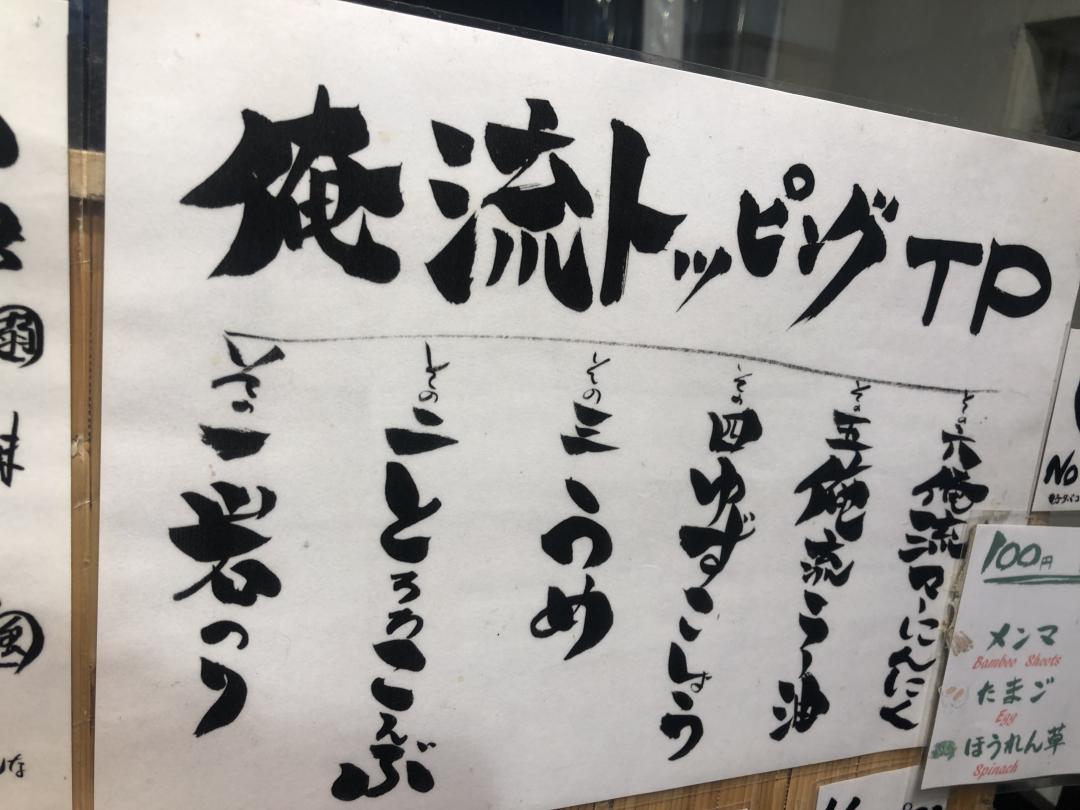 俺流トッピングTP
その一 岩のり
その二 とろろこんぶ
その三 うめ
その四 ゆずこしょう
その五 俺流らー油
その六 俺流マーにんにく
No
100円
メンマ
Bamboo Shoots
たまご
Egg
ほうれん草
Spinach